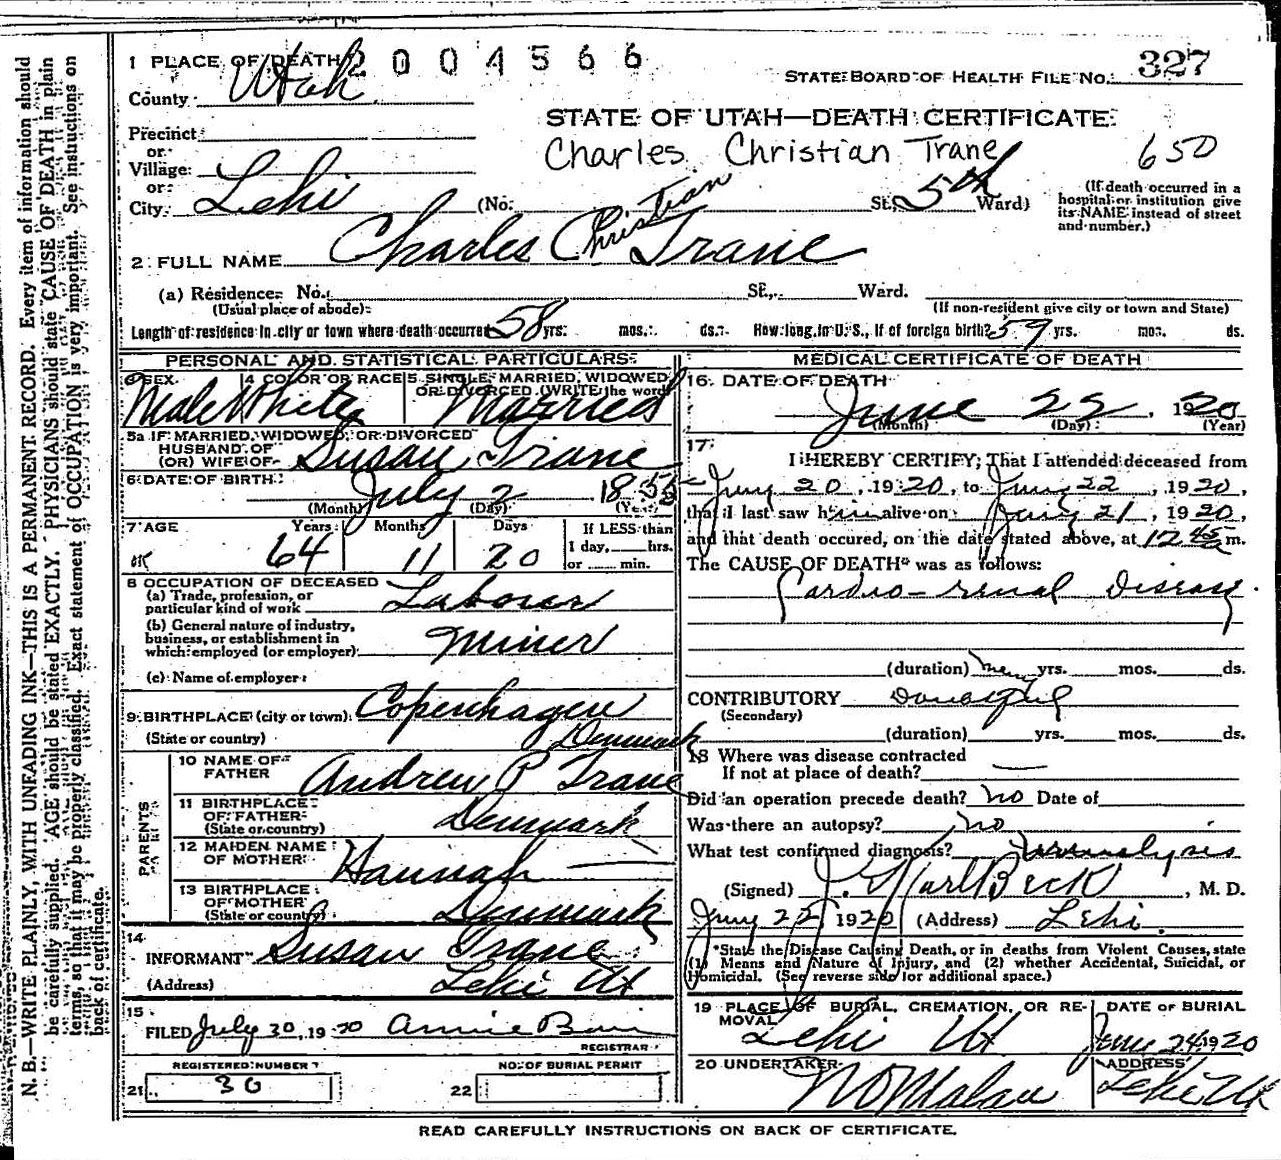 1 PLACE OF DEATH 2004566
STATE BOARD OF HEALTH FILE NO. 327
County Utah
STATE OF UTAH—DEATH CERTIFICATE
Precinct
or
Village
or
City Lehi (No. St. 5th Ward)
Charles Christian Trane 650
(If death occurred in a hospital or institution give its NAME instead of street and number.)
2 FULL NAME Charles Christian Trane
(a) Residence No. St., Ward.
(Usual place of abode) (If non-resident give city or town and State)
Length of residence in city or town where death occurred 58 yrs. mos. ds. How long in U. S., if of foreign birth? 59 yrs. mos. ds.
PERSONAL AND STATISTICAL PARTICULARS
SEX 4 COLOR OR RACE 5 SINGLE, MARRIED, WIDOWED OR DIVORCED (WRITE the word)
Male White Married
5a IF MARRIED, WIDOWED, OR DIVORCED
HUSBAND OF
(OR) WIFE OF Susan Trane
6 DATE OF BIRTH July 2 1855
(Month) (Day) (Year)
7 AGE Years Months Days If LESS than
64 11 20 1 day, hrs.
or min.
OK
8 OCCUPATION OF DECEASED
(a) Trade, profession, or
particular kind of work Laborer
(b) General nature of industry,
business, or establishment in
which employed (or employer) Miner
(c) Name of employer
9 BIRTHPLACE (city or town) Copenhagen
(State or country) Denmark
PARENTS
10 NAME OF
FATHER Andrew P Trane
11 BIRTHPLACE
OF FATHER
(State or country) Denmark
12 MAIDEN NAME
OF MOTHER Hannah
13 BIRTHPLACE
OF MOTHER
(State or country) Denmark
14
INFORMANT Susan Trane
(Address) Lehi Ut
15
FILED July 30, 1920 Annie
REGISTRAR
REGISTERED NUMBER NO. OF BURIAL PERMIT
21 30 22
MEDICAL CERTIFICATE OF DEATH
16 DATE OF DEATH
June 22, 1920
(Month) (Day) (Year)
17
I HEREBY CERTIFY, That I attended deceased from
June 20, 1920, to June 22, 1920,
that I last saw him alive on June 21, 1920,
and that death occured, on the date stated above, at 12 45 a m.
The CAUSE OF DEATH* was as follows:
Cardio-renal Disease.
(duration) many yrs. mos. ds.
CONTRIBUTORY
(Secondary)
(duration) yrs. mos. ds.
18 Where was disease contracted
If not at place of death? —
Did an operation precede death? no Date of
Was there an autopsy? no
What test confirmed diagnosis? Urinalysis
(Signed) J. Karl Beck, M. D.
June 22, 1920 (Address) Lehi.
*State the Disease Causing Death, or in deaths from Violent Causes, state
(1) Means and Nature of Injury, and (2) whether Accidental, Suicidal, or
Homicidal. (See reverse side for additional space.)
19 PLACE OF BURIAL, CREMATION, OR RE- DATE OF BURIAL
MOVAL Lehi Ut June 24 1920
20 UNDERTAKER ADDRESS
Lehi Ut
READ CAREFULLY INSTRUCTIONS ON BACK OF CERTIFICATE.
N. B.—WRITE PLAINLY, WITH UNFADING INK—THIS IS A PERMANENT RECORD. Every item of information should
be carefully supplied. AGE should be stated EXACTLY. PHYSICIANS should state CAUSE OF DEATH in plain
terms, so that it may be properly classified. Exact statement of OCCUPATION is very important. See instructions on
back of certificate.